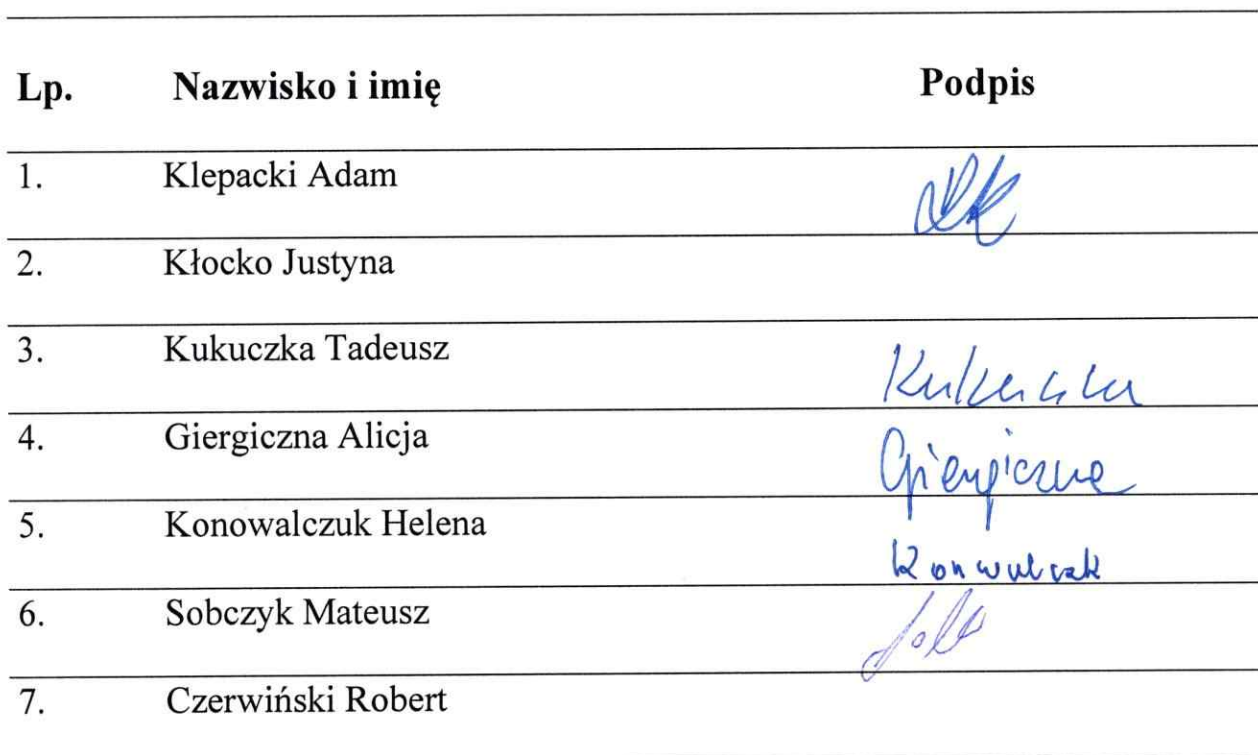 Lp. Nazwisko i imię Podpis
1. Klepacki Adam
2. Kłocko Justyna
3. Kukuczka Tadeusz Kukuczka
4. Giergiczna Alicja Giergiczna
5. Konowalczuk Helena
6. Sobczyk Mateusz
7. Czerwiński Robert